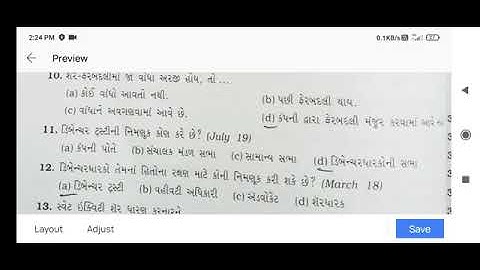 2:24 PM
0.1KB/s
Preview
10. શેર-ફેરબદલીમાં જો વાંધા અરજી હોય, તો ...
(a) કોઈ વાંધો આવતો નથી. (b) પછી ફેરબદલી થાય.
(c) વાંધાને અવગણવામાં આવે છે. (d) કંપની દ્વારા ફેરબદલી મંજૂર કરવામાં
11. ડિબેન્ચર ટ્રસ્ટીની નિમણૂક કોણ કરે છે? (July 19)
(a) કંપની પોતે (b) સંચાલક મંડળ સભા (c) સામાન્ય સભા (d) ડિબેન્ચરધારકોની સભા
12. ડિબેન્ચરધારકો તેમનાં હિતોના રક્ષણ માટે કોની નિમણૂક કરી શકે છે? (March 18)
(a) ડિબેન્ચર ટ્રસ્ટી (b) વહીવટી અધિકારી (c) ઍડવોકેટ (d) શેરધારક
13. સ્વેટ ઇક્વિટી શેર ધારણ કરનારને
Layout Adjust Save